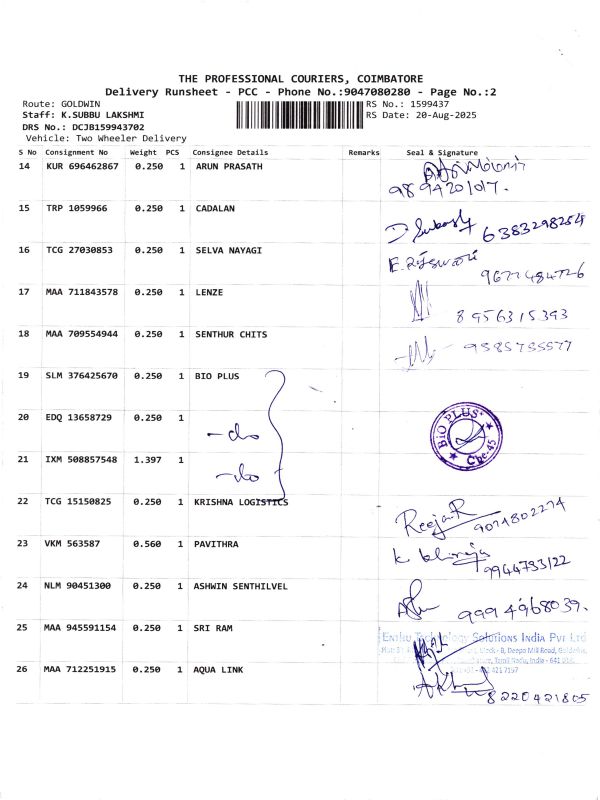 THE PROFESSIONAL COURIERS, COIMBATORE
Delivery Runsheet - PCC - Phone No.:9047080280 - Page No.:2
Route: GOLDWIN RS No.: 1599437
Staff: K.SUBBU LAKSHMI RS Date: 20-Aug-2025
DRS No.: DCJB159943702
Vehicle: Two Wheeler Delivery
S No Consignment No Weight PCS Consignee Details Remarks Seal & Signature
14 KUR 696462867 0.250 1 ARUN PRASATH
9894201017.
15 TRP 1059966 0.250 1 CADALAN
6383298254
16 TCG 27030853 0.250 1 SELVA NAYAGI
9677484726
17 MAA 711843578 0.250 1 LENZE
8956315393
18 MAA 709554944 0.250 1 SENTHUR CHITS
9585735577
19 SLM 376425670 0.250 1 BIO PLUS
20 EDQ 13658729 0.250 1 -do BIO PLUS Cbe-45
21 IXM 508857548 1.397 1 -do
22 TCG 15150825 0.250 1 KRISHNA LOGISTICS
Reeja.R 9074802274
23 VKM 563587 0.560 1 PAVITHRA
9944733122
24 NLM 90451300 0.250 1 ASHWIN SENTHILVEL
9994968039.
25 MAA 945591154 0.250 1 SRI RAM
Technology Solutions India Pvt Ltd
Block - B, Deepa Mill Road, Goldwins,
Tamil Nadu, India - 641
26 MAA 712251915 0.250 1 AQUA LINK
8220421805